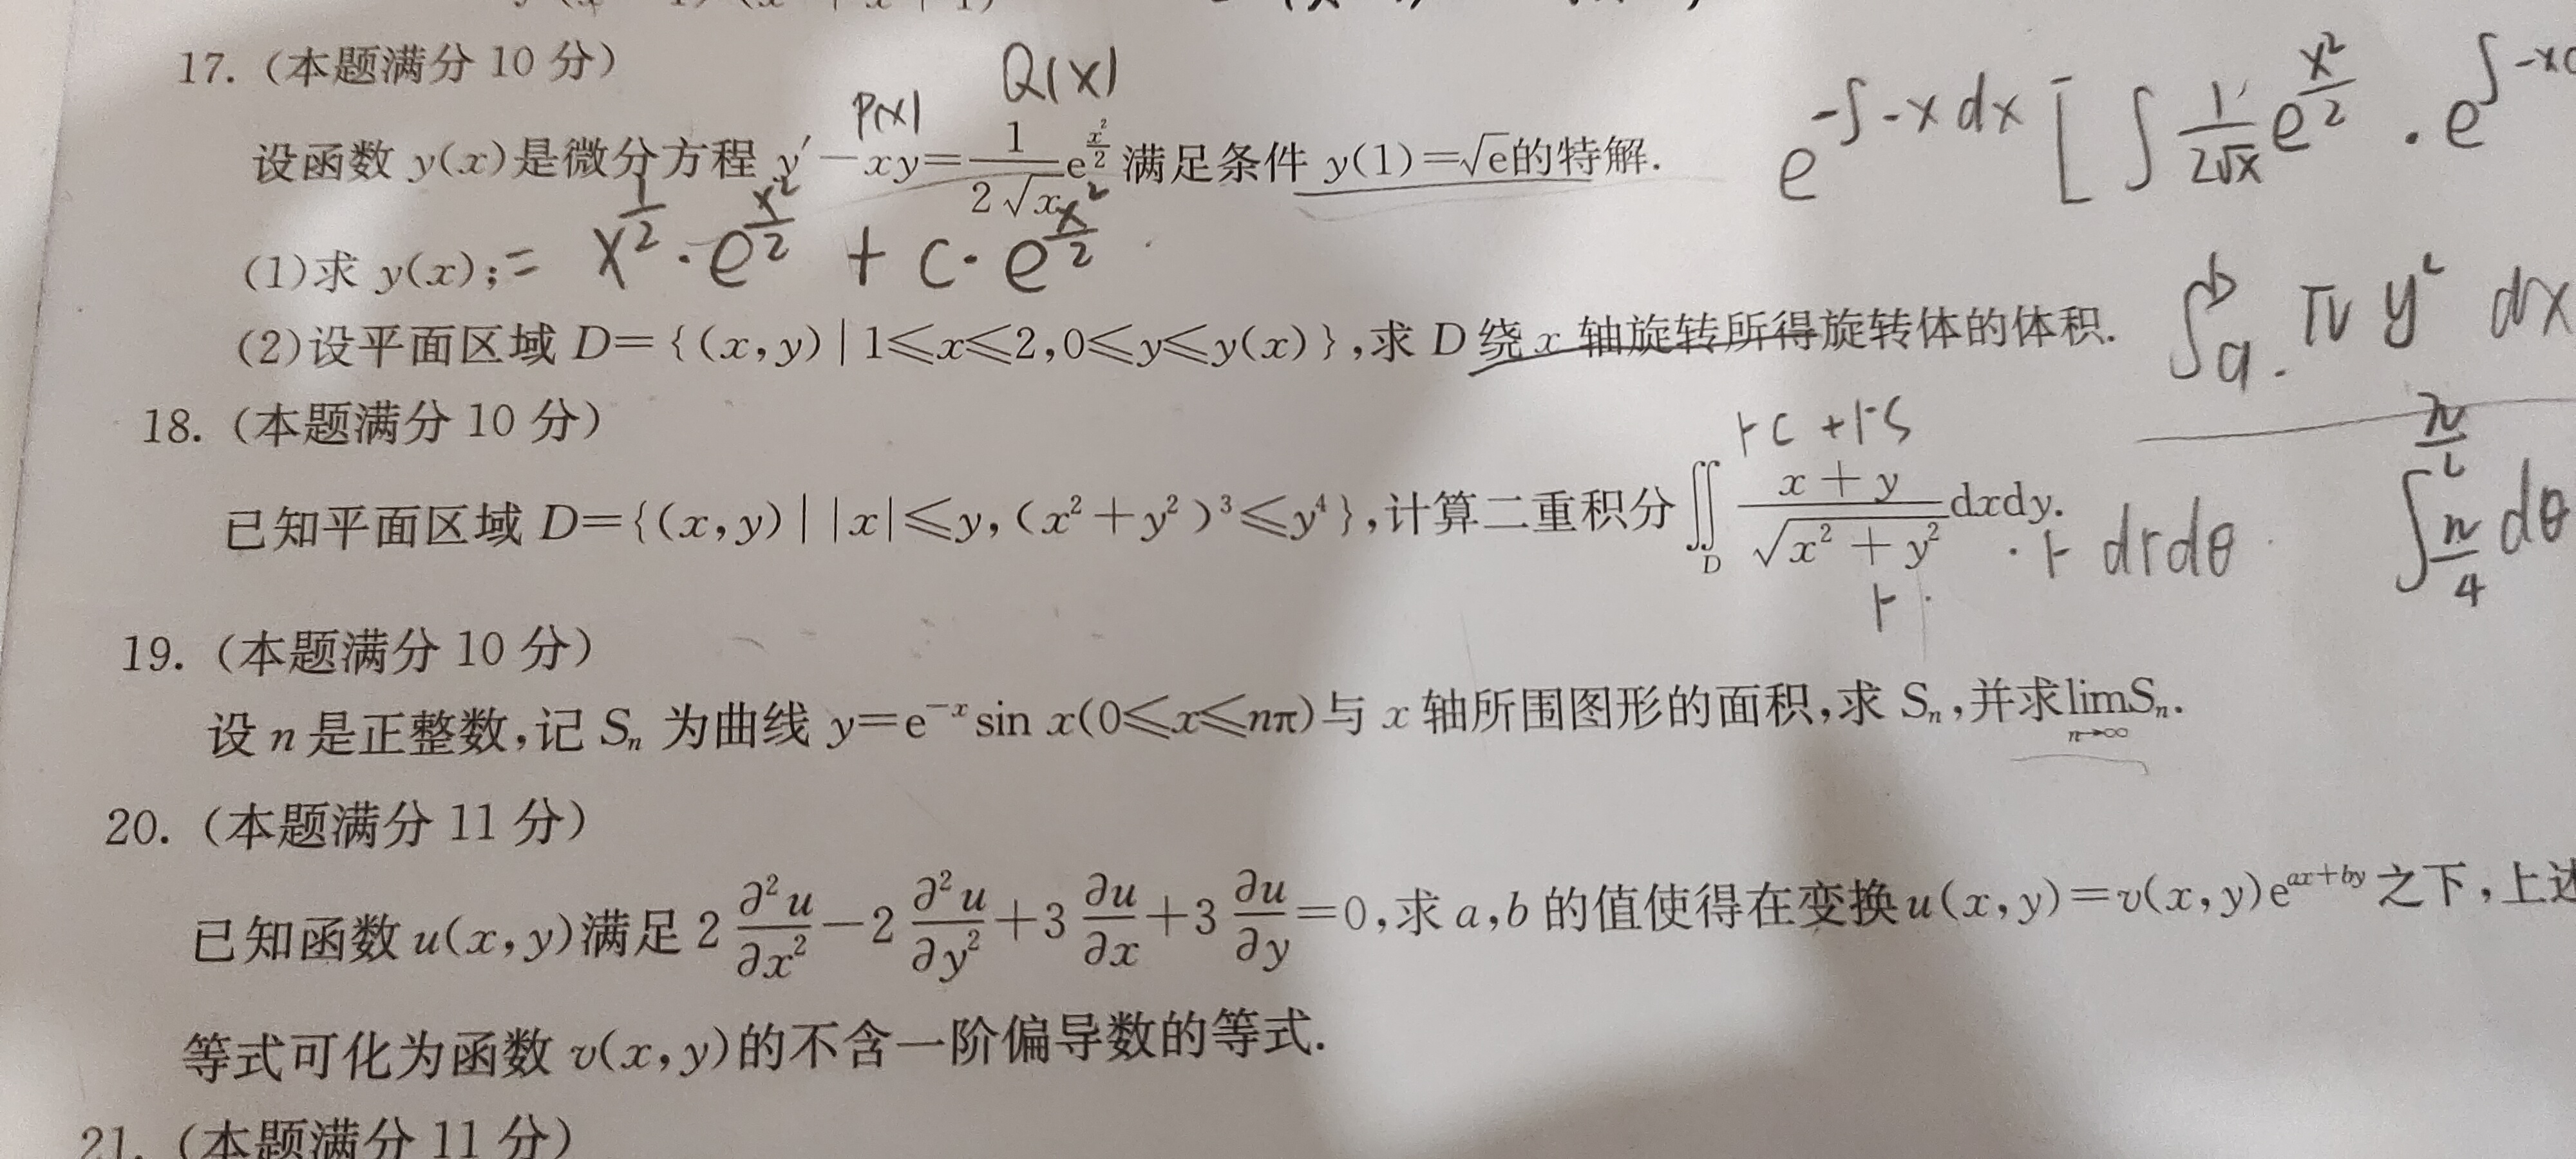 17. (本题满分 10 分)
P(x) Q(x)
设函数 y(x)是微分方程 y′-xy=\frac{1}{2\sqrt{x}}e^{\frac{x^2}{2}}满足条件 y(1)=\sqrt{e}的特解.
e^{-∫-xdx}[∫\frac{1}{2\sqrt{x}}e^{\frac{x^2}{2}}·e^{∫-x
(1)求 y(x);= x^{\frac{1}{2}}·e^{\frac{x^2}{2}}+C·e^{\frac{x^2}{2}}
(2)设平面区域 D={(x,y)|1≤x≤2,0≤y≤y(x)},求 D 绕 x 轴旋转所得旋转体的体积.
∫_a^b πy^2 dx
18. (本题满分 10 分)
rc+rs
已知平面区域 D={(x,y)||x|≤y,(x^2+y^2)^3≤y^4},计算二重积分∬_D\frac{x+y}{\sqrt{x^2+y^2}}dxdy.
r ·r drdθ ∫_{\frac{π}{4}}^{\frac{π}{2}}dθ
19. (本题满分 10 分)
设 n 是正整数,记 S_n 为曲线 y=e^{-x}sin x(0≤x≤nπ)与 x 轴所围图形的面积,求 S_n,并求\lim_{n→∞}S_n.
20. (本题满分 11 分)
已知函数 u(x,y)满足 2\frac{∂^2u}{∂x^2}-2\frac{∂^2u}{∂y^2}+3\frac{∂u}{∂x}+3\frac{∂u}{∂y}=0,求 a,b 的值使得在变换 u(x,y)=v(x,y)e^{ax+by}之下,上述
等式可化为函数 v(x,y)的不含一阶偏导数的等式.
21. (本题满分 11 分)